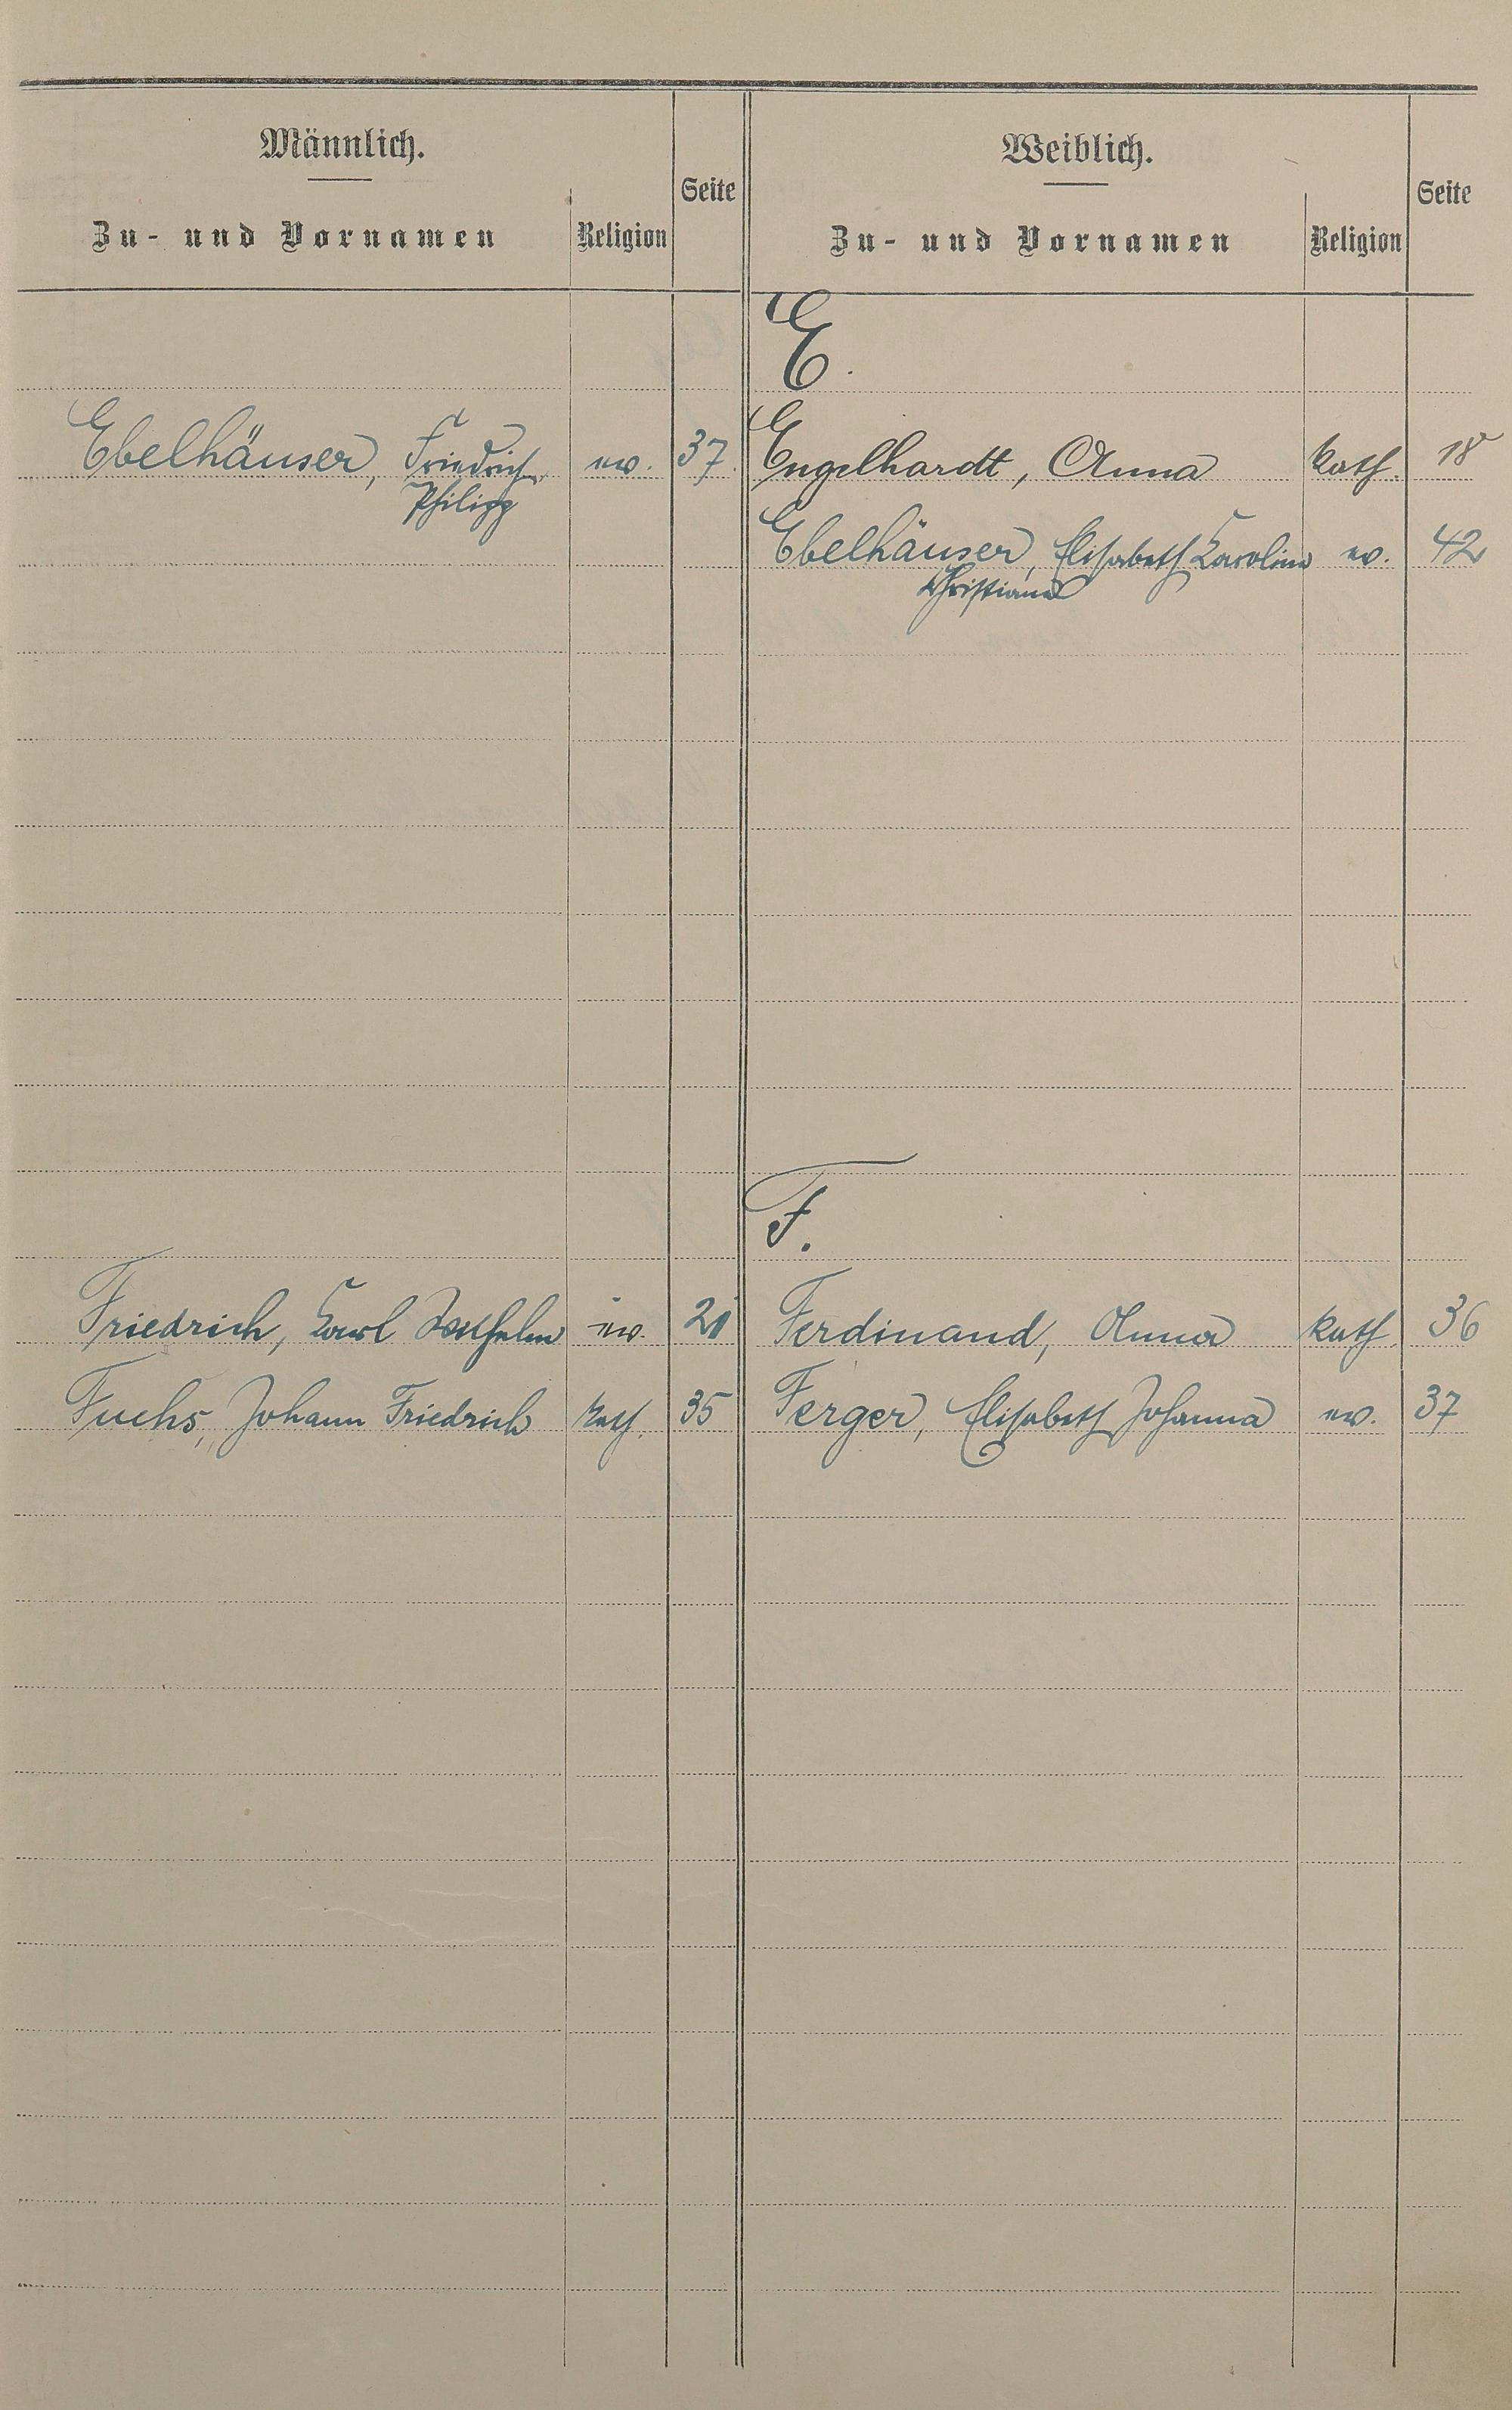 Männlich.
Seite
Zu- und Vornamen
Religion
Weiblich.
Seite
Zu- und Vornamen
Religion
E.
Ebelhäuser, Friedrich ev. 37. Engelhardt, Anna kath. 18
Philipp
Ebelhäuser, Elisabeth Karoline ev. 42
Christiane
F.
Friedrich, Karl Wilhelm ev. 21 Ferdinand, Anna kath. 36
Fuchs, Johann Friedrich kath. 35 Ferger, Elisabeth Johanna ev. 37